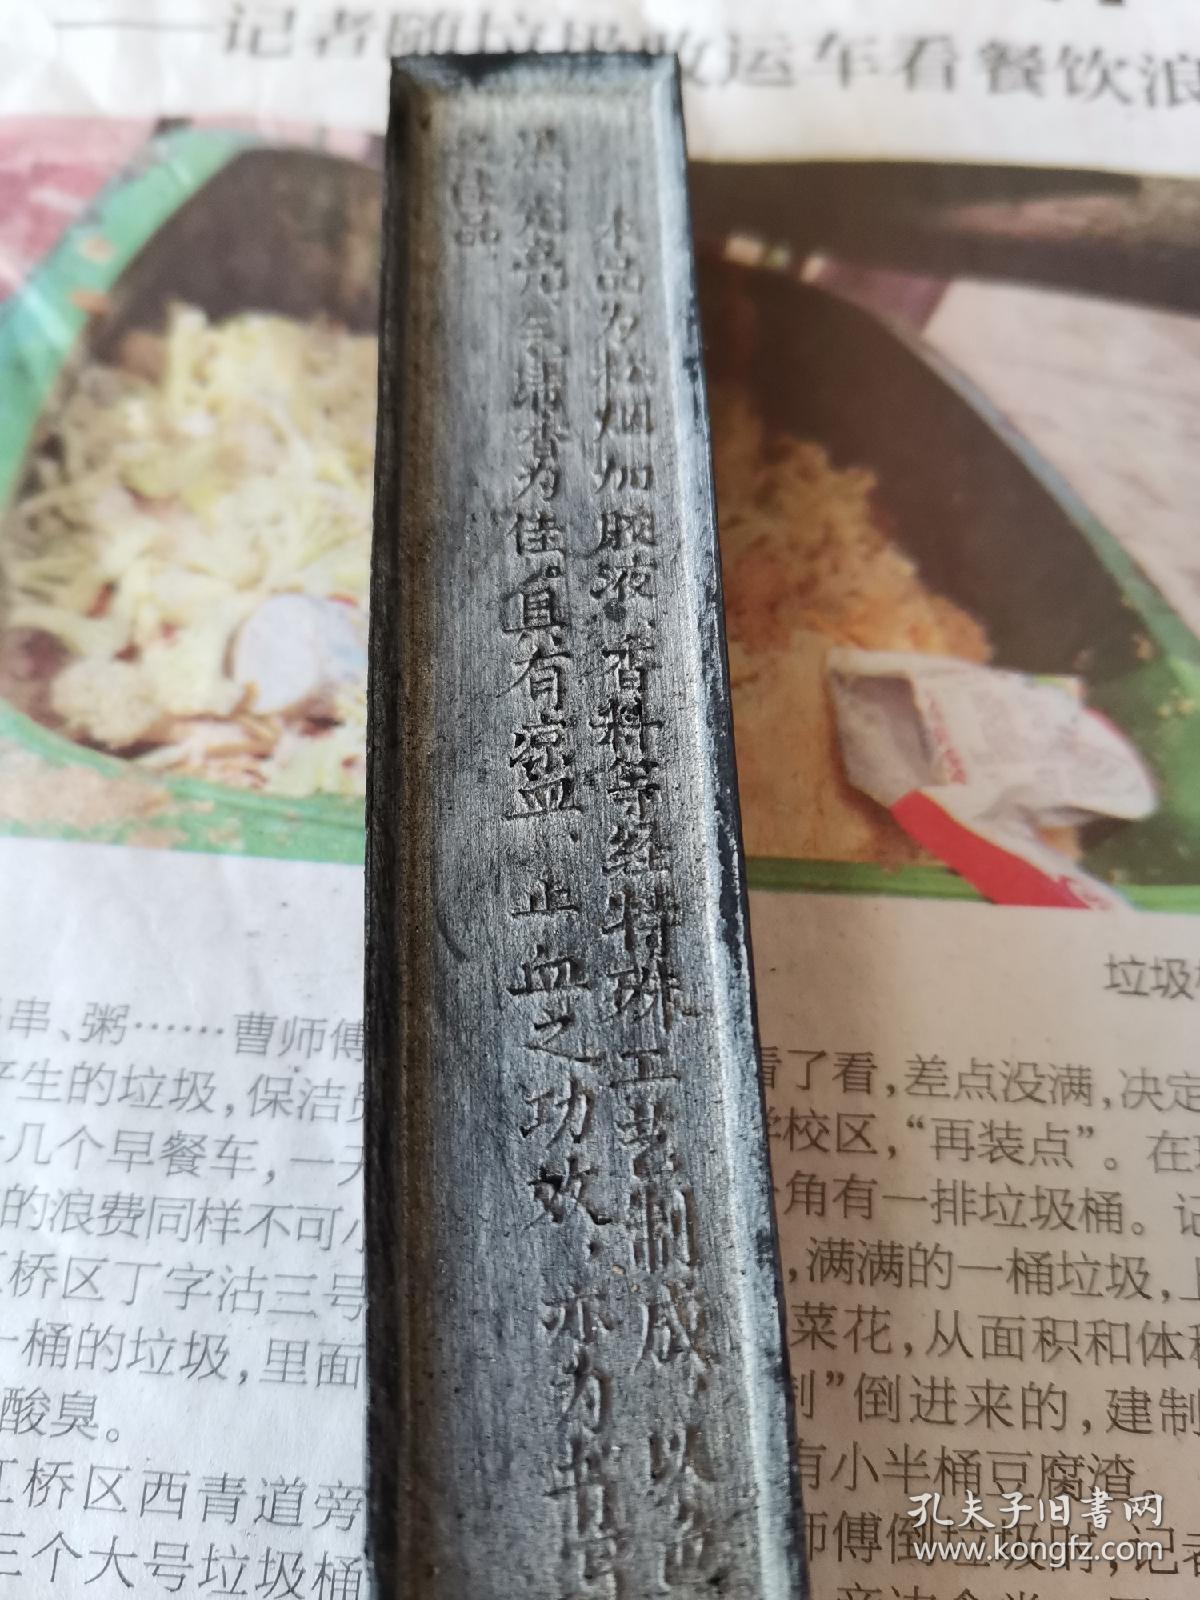 ——记者随垃圾收运车看餐饮浪
本品为松烟加胶液、香料等经特殊工艺制成，以色
光亮、气味香为佳。具有凉血、止血之功效，亦为书写
佳品
垃圾
串、粥……曹师傅
产生的垃圾，保洁员
几个早餐车，一天
的浪费同样不可小
桥区丁字沽三号
一桶的垃圾，里面
酸臭。
红桥区西青道旁
三个大号垃圾桶
看了看，差点没满，决定
学校区，“再装点”。在
角有一排垃圾桶。记
，满满的一桶垃圾，
菜花，从面积和体积
制”倒进来的，建制
有小半桶豆腐渣。
师傅倒垃圾时，记者
孔夫子旧书网
www.kongfz.com